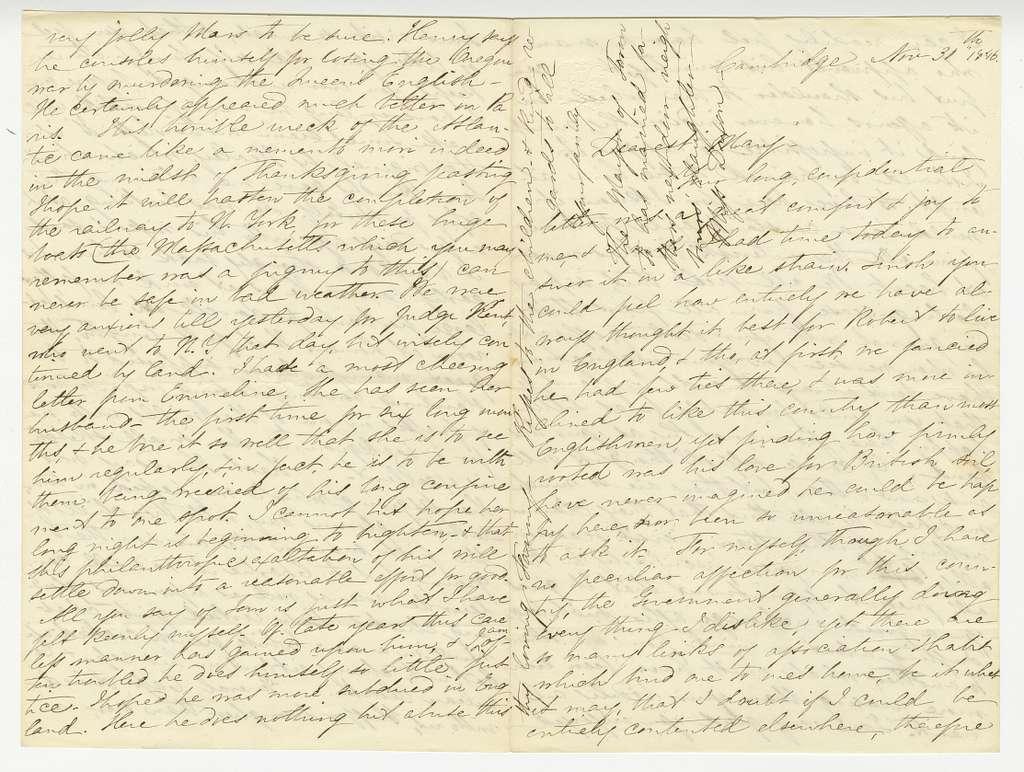 Cambridge Nov 30th 1846.
Dearest Mary,
Your long, confidential
letter was a great comfort & joy to
me, & I wish I had time today to an-
swer it in a like strain. I wish you
could feel how entirely we have al-
ways thought it best for Robert to live
in England, & tho' at first we fancied
he had few ties there, & was more in-
clined to like this country than most
Englishmen yet finding how firmly
rooted was his love for British soil,
have never imagined he could be hap-
py here, nor been so unreasonable as
to ask it. For myself, though I have
no peculiar affection for this coun-
try, the Government generally doing
every thing I dislike, yet there are
so many links of association & habit
which bind one to one's home, be it what
it may, that I doubt if I could be
entirely contented elsewhere, therefore
very jolly Mars to be sure. Henry says
he consoles himself for losing the Oregon
war by murdering the Queen's English.
He certainly appeared much better in Pa-
ris. This horrible wreck of the Atlan-
tic came like a memento mori indeed
in the midst of Thanksgiving feasting.
I hope it will hasten the completion of
the railway to N. York for these huge
boats (the Massachusetts which you may
remember was a pigmy to this) can
never be safe in bad weather. We were
very anxious till yesterday for Judge Kent
who went to N.Y. that day, but wisely con-
tinued by land. I had a most cheering
letter from Emmeline. She has seen her
husband the first time for six long mon-
ths, & he bore it so well that she is to see
him regularly, & in fact he is to be with
them, being wearied of his long confine-
ment to one spot. I cannot but hope her
long night is beginning to brighten & that
this philanthropic exaltation of his will
settle down into a reasonable effort for good.
All you say of Tom is just what I have
felt keenly myself. Of late years this care-
less manner has gained upon him, & I am
often troubled he does himself so little jus-
tice. I hoped he was more subdued in Eng-
land. Here he does nothing but abuse this
my loving &
Kisses to the children & kind re-
gards to all
family
The Mayor of
to be married to
next door neigh-
bor's daughter
Miss